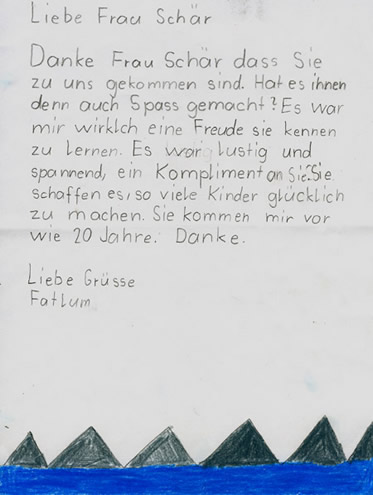 Liebe Frau Schär
Danke Frau Schär dass Sie
zu uns gekommen sind. Hat es ihnen
denn auch Spass gemacht? Es war
mir wirklch eine Freude sie kennen
zu lernen. Es war lustig und
spannend, ein Kompliment an Sie. Sie
schaffen es, so viele Kinder glücklich
zu machen. Sie kommen mir vor
wie 20 Jahre. Danke.
Liebe Grüsse
Fatlum